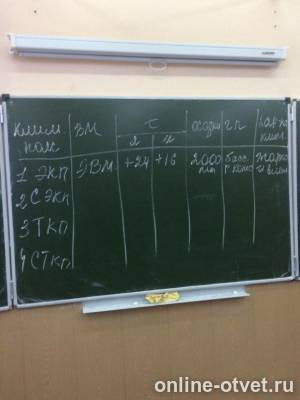 Клим пояс ВМ t осадки г.п. хар-ка клим.
л з
1 ЭКП ЭВМ +24 +16 2000 мм басс. р. Конго жарко и влаж
2 СЭКП
3 ТКП
4 СТКП
online-otvet.ru